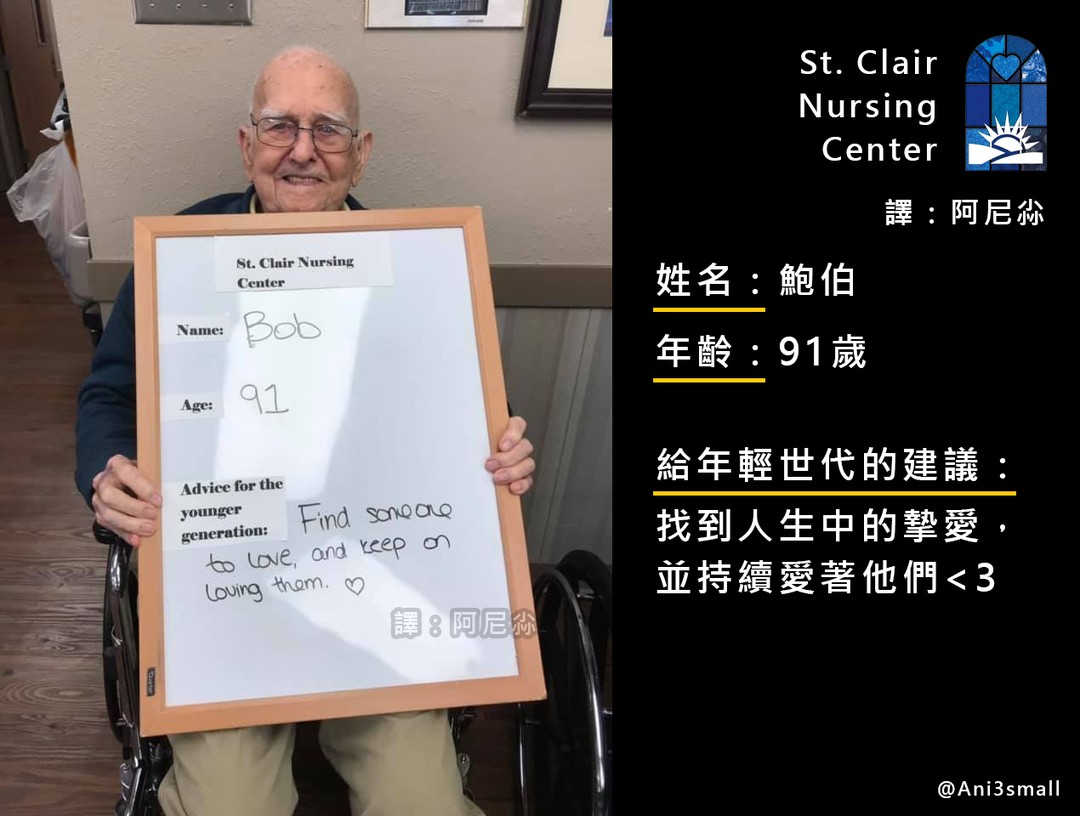 St. Clair Nursing
Center
Name: Bob
Age: 91
Advice for the
younger
generation: Find someone
to love, and keep on
loving them. ♡
譯：阿尼尛
St. Clair
Nursing
Center
譯：阿尼尛
姓名：鮑伯
年齡：91歲
給年輕世代的建議：
找到人生中的摯愛，
並持續愛著他們<3
@Ani3small